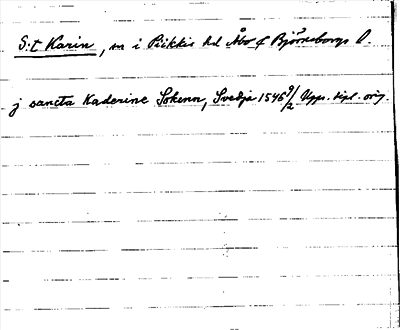 S:t Karin, sn i Piikkis hd Åbo o Björneborgs l.
j sancta Kaderine Sokenn, Svidja 1546 9/2 Upps. dipl. orig.